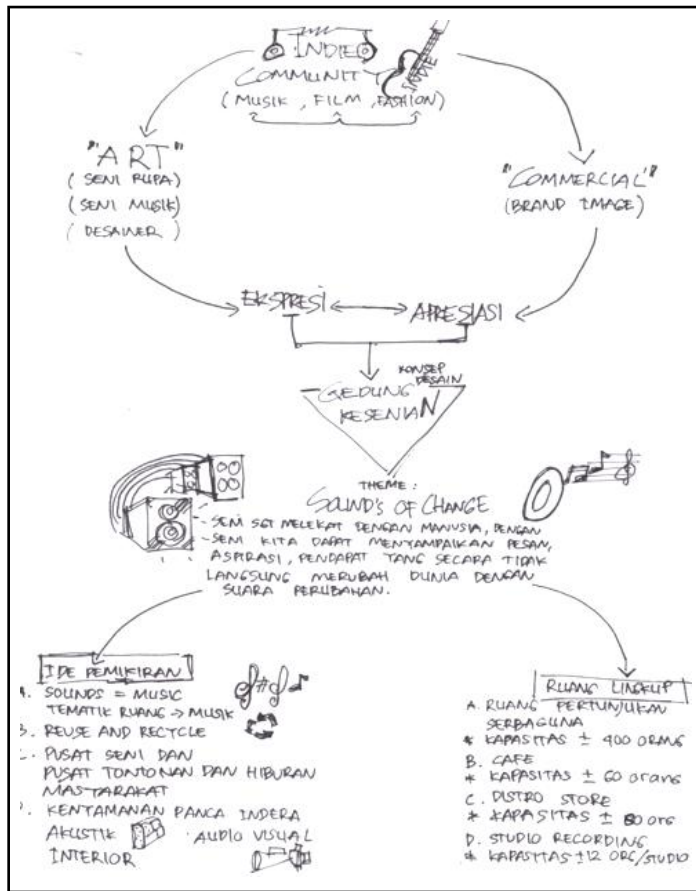 INDIE
COMMUNITY
INDIE
(MUSIK, FILM, FASHION)
"ART"
(SENI RUPA)
(SENI MUSIK)
(DESAINER)
"COMMERCIAL"
(BRAND IMAGE)
EKSPRESI
APRESIASI
KONSEP
DESAIN
GEDUNG
KESENIAN
THEME :
SOUND'S OF CHANGE
- SENI SGT MELEKAT DENGAN MANUSIA, DENGAN
- SENI KITA DAPAT MENYAMPAIKAN PESAN,
ASPIRASI, PENDAPAT YANG SECARA TIDAK
LANGSUNG MERUBAH DUNIA DENGAN
SUARA PERUBAHAN.
IDE PEMIKIRAN
A. SOUNDS = MUSIC
TEMATIK RUANG → MUSIK
B. REUSE AND RECYCLE
C. PUSAT SENI DAN
PUSAT TONTONAN DAN HIBURAN
MASYARAKAT
D. KENYAMANAN PANCA INDERA
AKUSTIK · AUDIO VISUAL
INTERIOR
RUANG LINGKUP
A. RUANG PERTUNJUKAN
SERBAGUNA
* KAPASITAS ± 400 ORANG
B. CAFE
* KAPASITAS ± 60 orang
C. DISTRO STORE
* KAPASITAS ± 80 org
D. STUDIO RECORDING
* KAPASITAS ±12 ORG/STUDIO